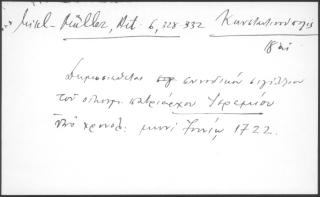 Mikl-Müller, Act. 6, 328-332 Κωνσταντινούπολις
18 αι
Δημοσιεύεται συνοδικόν σιγίλλιον
του οἰκουμ. πατριάρχου Ἱερεμίου
ὑπό χρονολ. μηνί Ἰουνίῳ 1722.